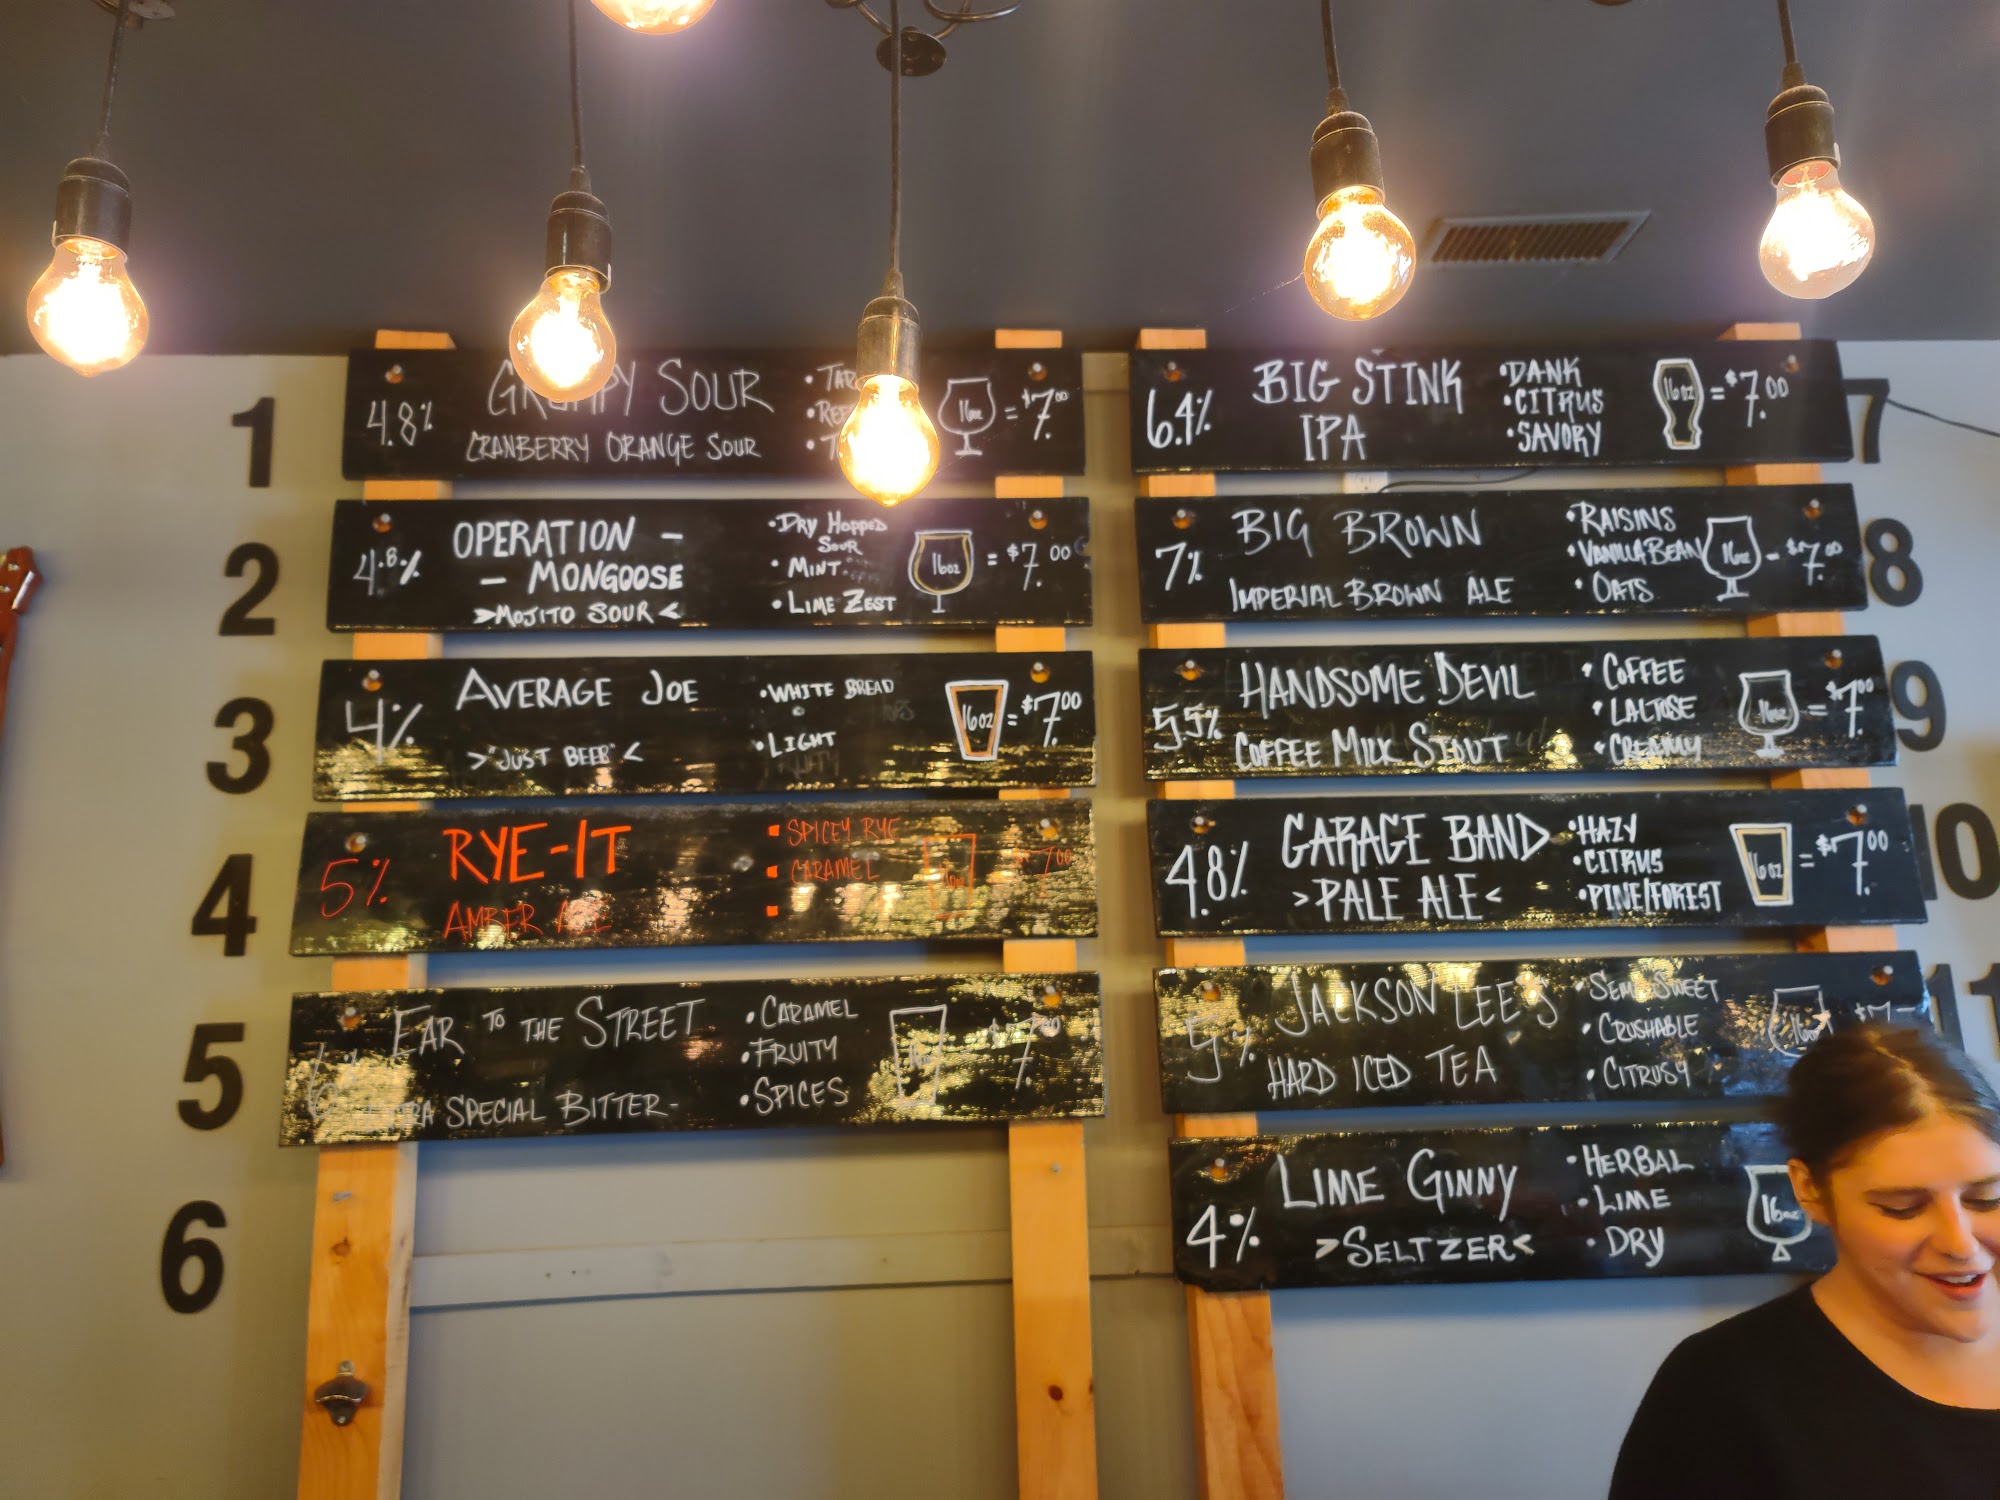 1
4.8%
GRUMPY SOUR
CRANBERRY ORANGE SOUR
16oz = $7.00
2
4.8%
OPERATION -
- MONGOOSE
>MOJITO SOUR<
• DRY HOPPED
SOUR
• MINT
• LIME ZEST
16oz = $7.00
3
4%
AVERAGE JOE
>"JUST BEER"<
• WHITE BREAD
• LIGHT
16oz = $7.00
4
5%
RYE-IT
AMBER ALE
SPICEY RYE
CARAMEL
$7.00
5
6%
EAR TO THE STREET
EXTRA SPECIAL BITTER-
• CARAMEL
• FRUITY
• SPICES
$7.00
6
7
6.4%
BIG STINK
IPA
• DANK
• CITRUS
• SAVORY
16oz = $7.00
8
7%
BIG BROWN
IMPERIAL BROWN ALE
• RAISINS
• VANILLA BEAN
• OATS
16oz - $7.00
9
5.5%
HANDSOME DEVIL
COFFEE MILK STOUT
• COFFEE
• LALTOSE
• CREAMY
16oz = $7.00
10
4.8%
GARAGE BAND
>PALE ALE<
• HAZY
• CITRUS
• PINE/FOREST
16oz = $7.00
11
5%
JACKSON LEE'S
HARD ICED TEA
• SEMI SWEET
• CRUSHABLE
• CITRUSY
16oz $7
4%
LIME GINNY
>SELTZER<
• HERBAL
• LIME
• DRY
16oz